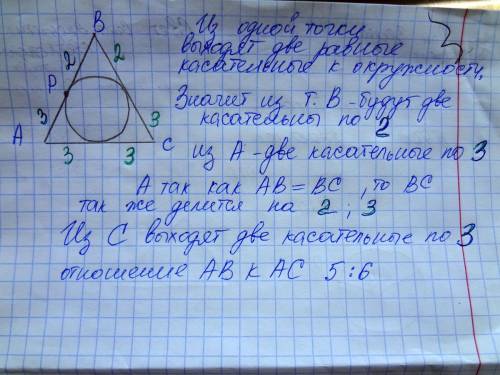 B
2 2
P
3 3
A C
3 3
Из одной точки
выходят две равные
касательные к окружности.
Значит из т. В - будут две
касательны по 2
из А - две касательные по 3
А так как АВ = ВС, то ВС
так же делится на 2; 3
Из С выходят две касательные по 3
отношение АВ к АС 5:6